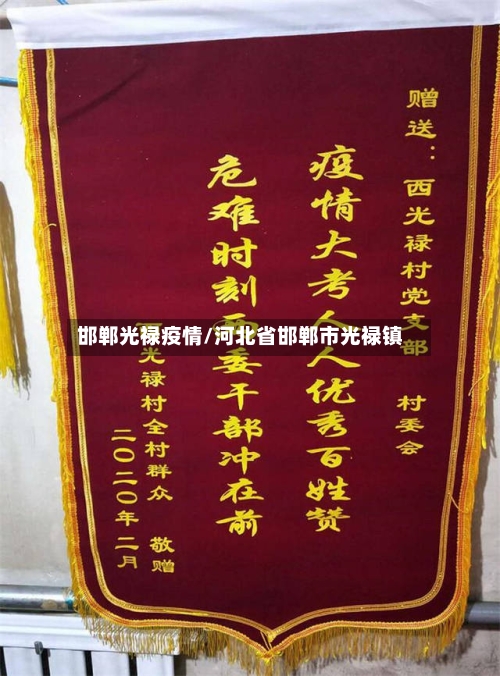 赠送：西光禄村党支部 村委会
疫情大考人人优秀百姓赞
危难时刻委干部冲在前
光禄村全村群众 敬赠
二〇二〇年二月
邯郸光禄疫情/河北省邯郸市光禄镇